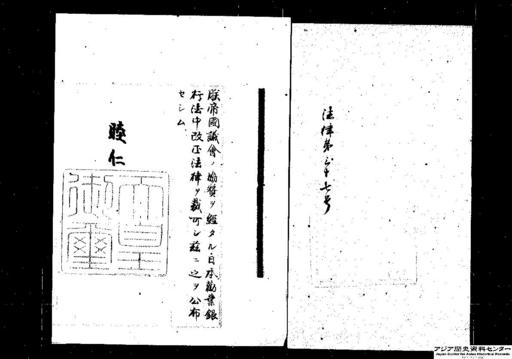 法律第三十七号
朕帝國議會ノ協賛ヲ經タル日本勸業銀
行法中改正法律ヲ裁可シ茲ニ之ヲ公布
セシム
睦仁
天皇
御璽
アジア歴史資料センター
Japan Center for Asian Historical Records